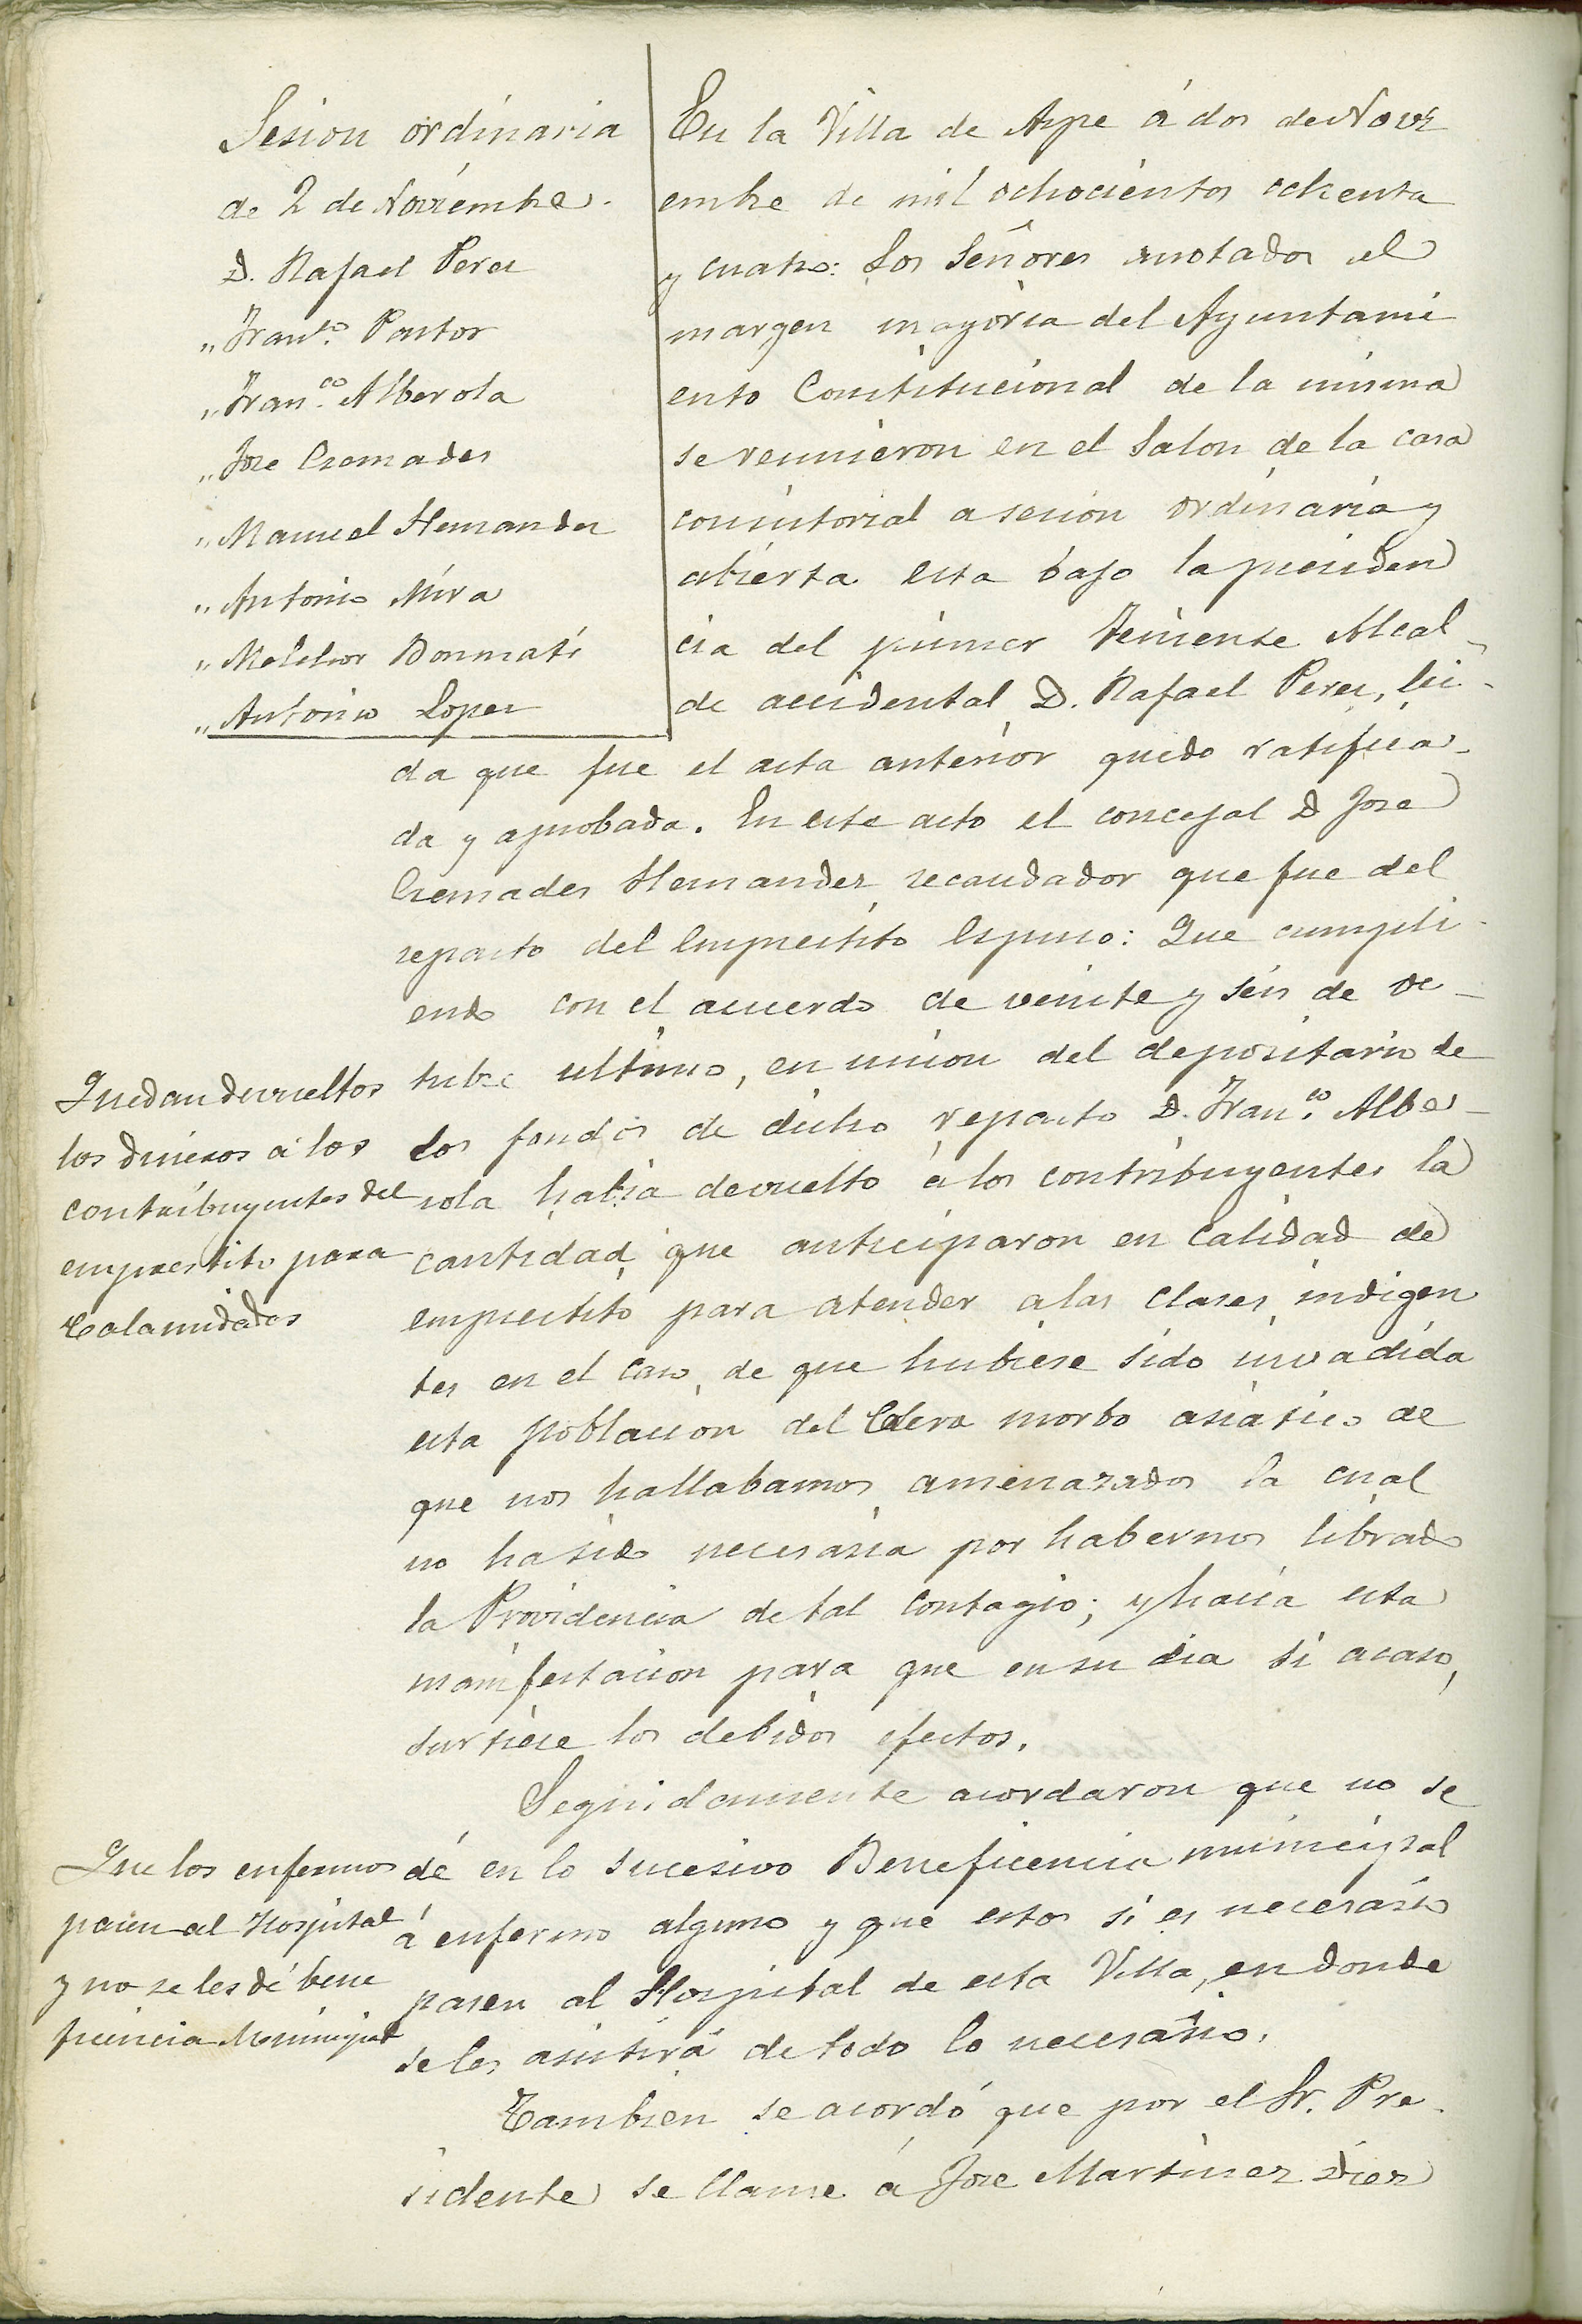 Sesion ordinaria
de 2 de Noviembre.
D. Rafael Perez
" Franco. Pastor
" Franco. Alberola
" Jose Cremades
" Manuel Hernandez
" Antonio Mira
" Melchor Bonmati
" Antonio Lopez
En la Villa de Aspe á dos de Novi
embre de mil ochocientos ochenta
y cuatro: Los Señores anotados al
margen mayoria del Ayuntami
ento Constitucional de la misma
se reunieron en el Salon de la casa
consistorial a sesion ordinaria y
abierta esta bajo la presiden
cia del primer Teniente Alcal-
de accidental D. Rafael Perez, lei-
da que fue el acta anterior quedo ratifica-
da y aprobada. En este acto el concejal D Jose
Cremades Hernandez recaudador que fue del
reparto del Emprestito Espuso: Que cumpli-
endo con el acuerdo de veinte y seis de Oc-
tubre ultimo, en union del depositario de
los fondos de dicho reparto D. Franco. Albe-
rola habia devuelto á los contribuyentes la
cantidad que anticiparon en calidad de
emprestito para atender a las clases indigen
tes en el caso de que hubiese sido invadida
esta poblacion del Colera morbo asiatico de
que nos hallabamos amenazados la cual
no ha sido necesaria por habernos librado
la Providencia de tal contagio; y hacia esta
manifestacion para que en su dia si acaso,
surtiese los debidos efectos.
Quedan devueltos
los dineros á los
contribuyentes del
emprestito para
Calamidades
Seguidamente acordaron que no se
dé en lo sucesivo Beneficencia municipal
á enfermo alguno y que estos si es necesario
pasen al Hospital de esta Villa, en donde
se les asistirá de todo lo necesario.
Que los enfermos
pasen al Hospital
y no se les dé bene
ficencia Municipal
Tambien se acordó que por el Sr. Pre-
sidente se llame á Jose Martinez Diez